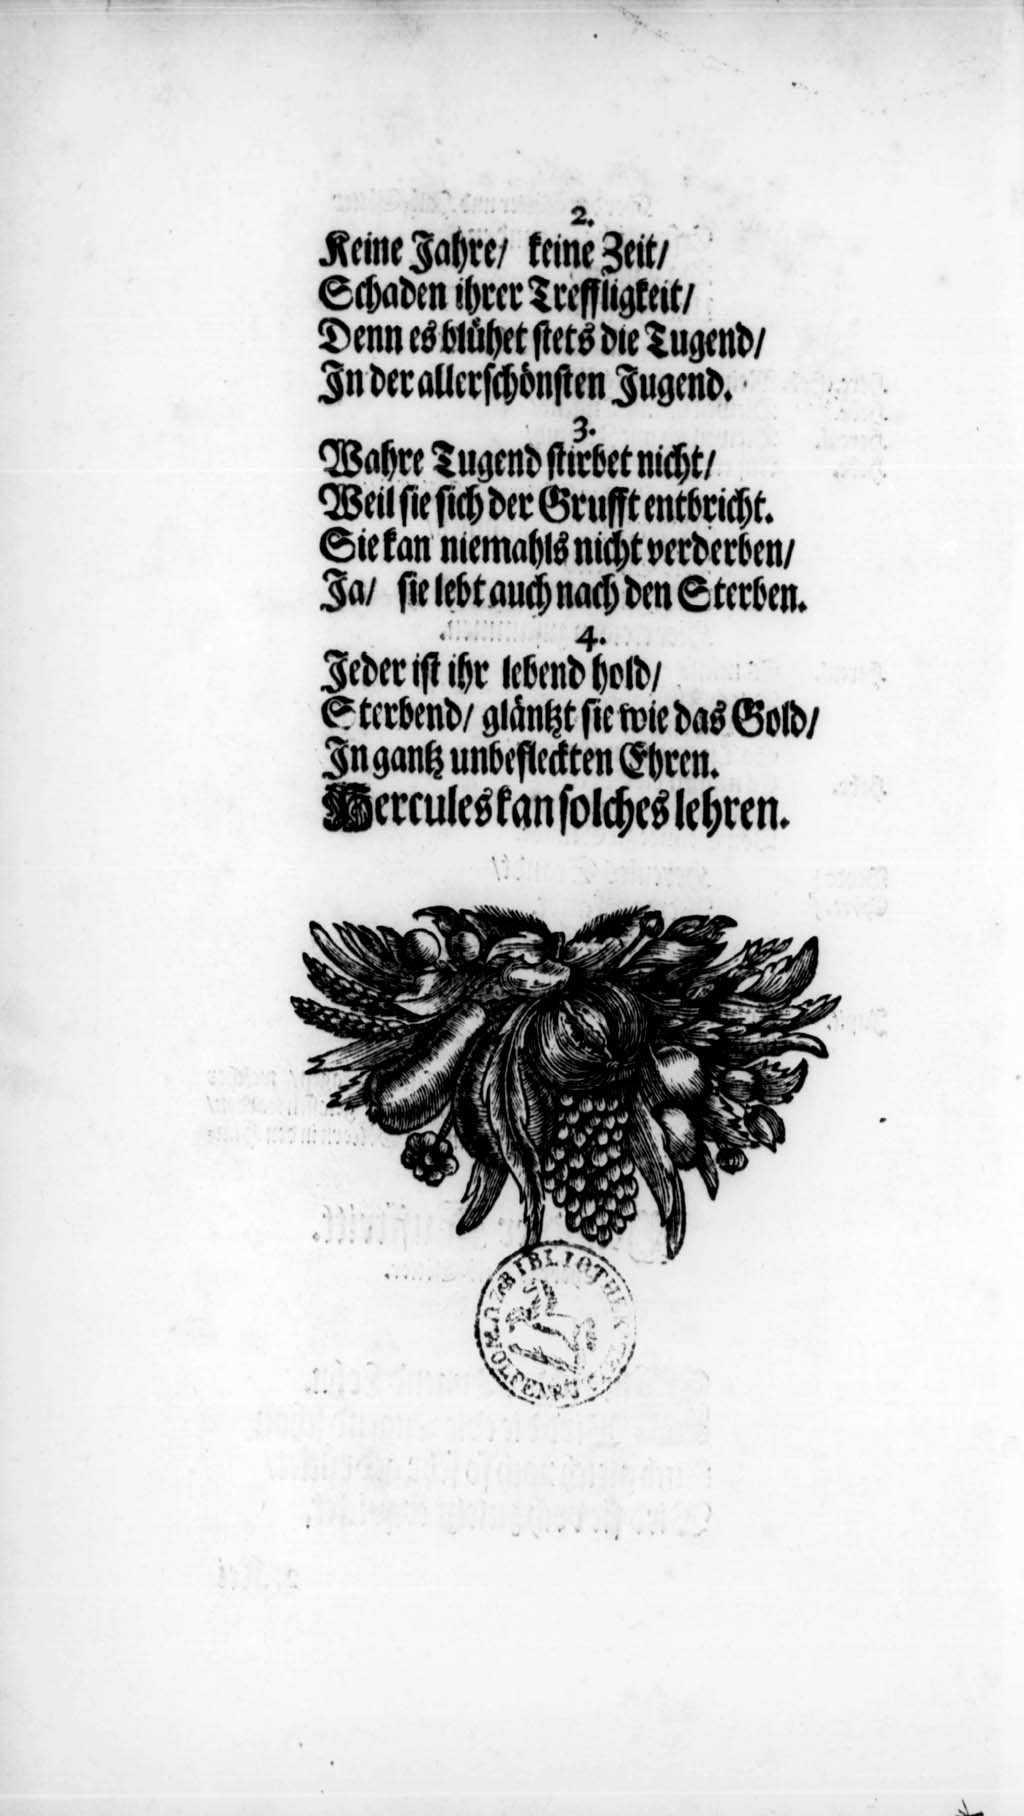 2.
Keine Jahre/ keine Zeit/
Schaden ihrer Treffligkeit/
Denn es blühet stets die Tugend/
In der allerschönsten Jugend.
3.
Wahre Tugend stirbet nicht/
Weil sie sich der Grufft entbricht.
Sie kan niemahls nicht verderben/
Ja/ sie lebt auch nach den Sterben.
4.
Jeder ist ihr lebend hold/
Sterbend/ gläntzt sie wie das Gold/
In gantz unbefleckten Ehren.
Hercules kan solches lehren.
BIBLIOTHEK